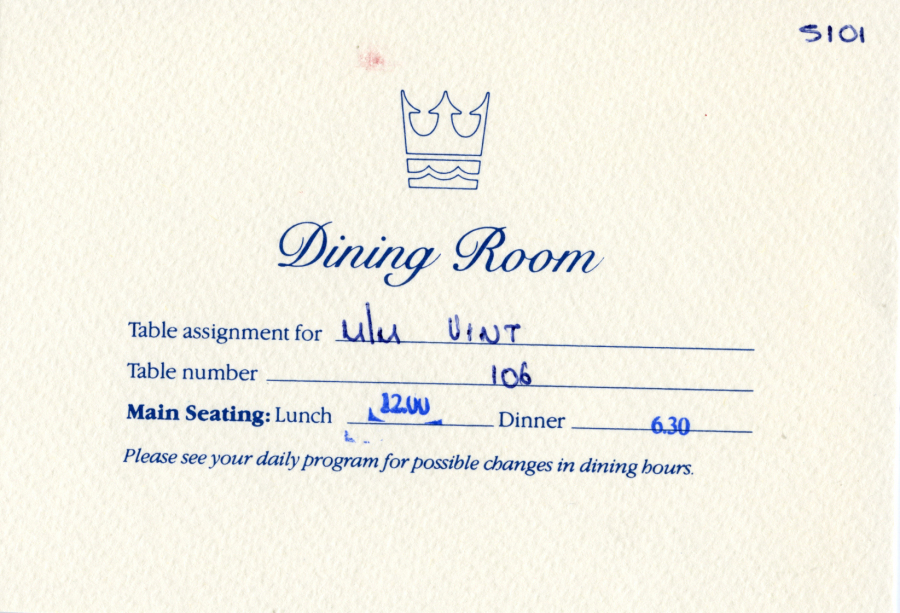 5101
Dining Room
Table assignment for M/M VINT
Table number 106
Main Seating: Lunch 12.00 Dinner 6.30
Please see your daily program for possible changes in dining hours.